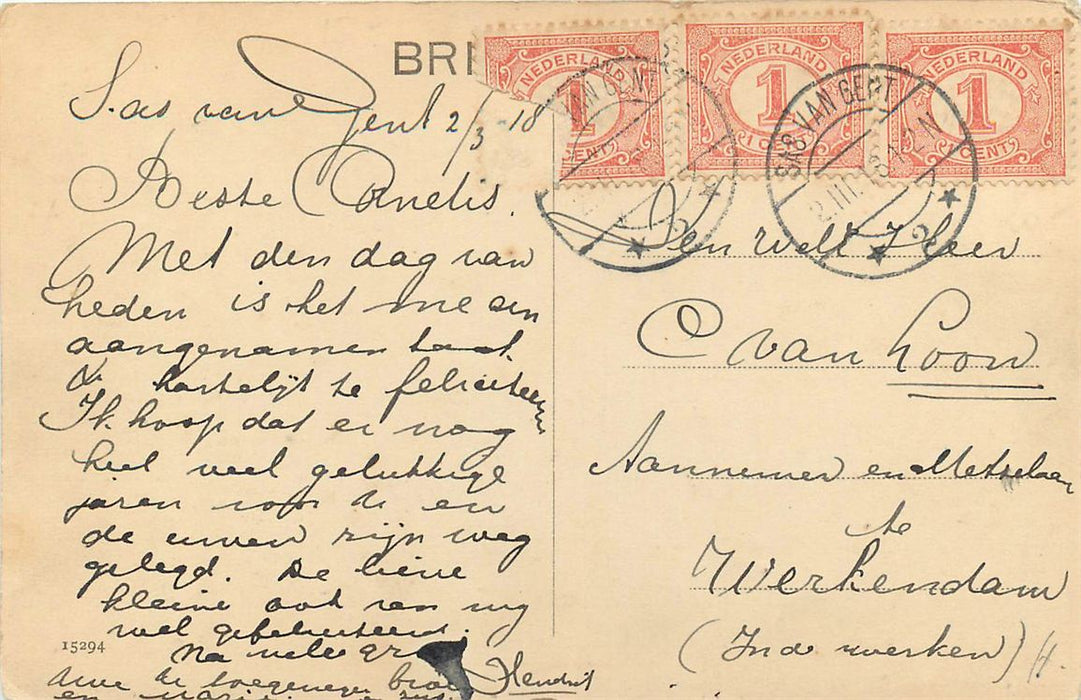 BRI
NEDERLAND
1
CENT
NEDERLAND
1
1 CENT
NEDERLAND
1
CENT
VAN GENT
SAS VAN GENT
2.III.18.1-2N
2
Sas van Gent 2/3 - 18
Beste Cornelis.
Met den dag van
heden is het me een
aangenamen taak
U hartelijk te feliciteeren
Ik hoop dat er nog
heel veel gelukkige
jaren voor U en
de uwen zijn weg
gelegd. De lieve
kleine ook van mij
wel gefeliciteerd.
Na vele gr
toegenegen broer Hendrik
en
15294
Den WelE Heer
C van Loon
Aannemer en Metselaar
te
Werkendam
(Ind werken) H.